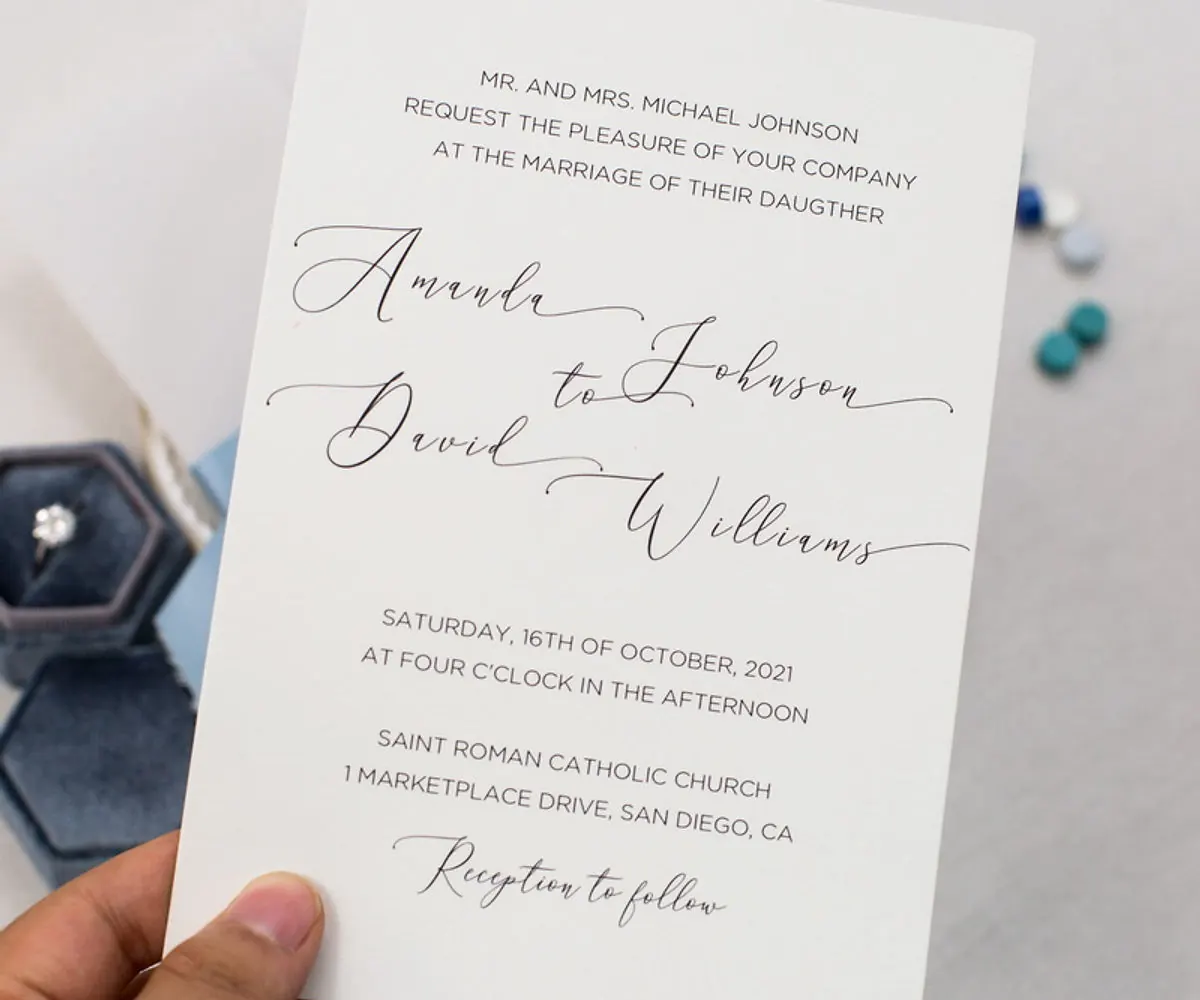 MR. AND MRS. MICHAEL JOHNSON
REQUEST THE PLEASURE OF YOUR COMPANY
AT THE MARRIAGE OF THEIR DAUGTHER
Amanda
Johnson
to
David
Williams
SATURDAY, 16TH OF OCTOBER, 2021
AT FOUR C'CLOCK IN THE AFTERNOON
SAINT ROMAN CATHOLIC CHURCH
1 MARKETPLACE DRIVE, SAN DIEGO, CA
Reception to follow